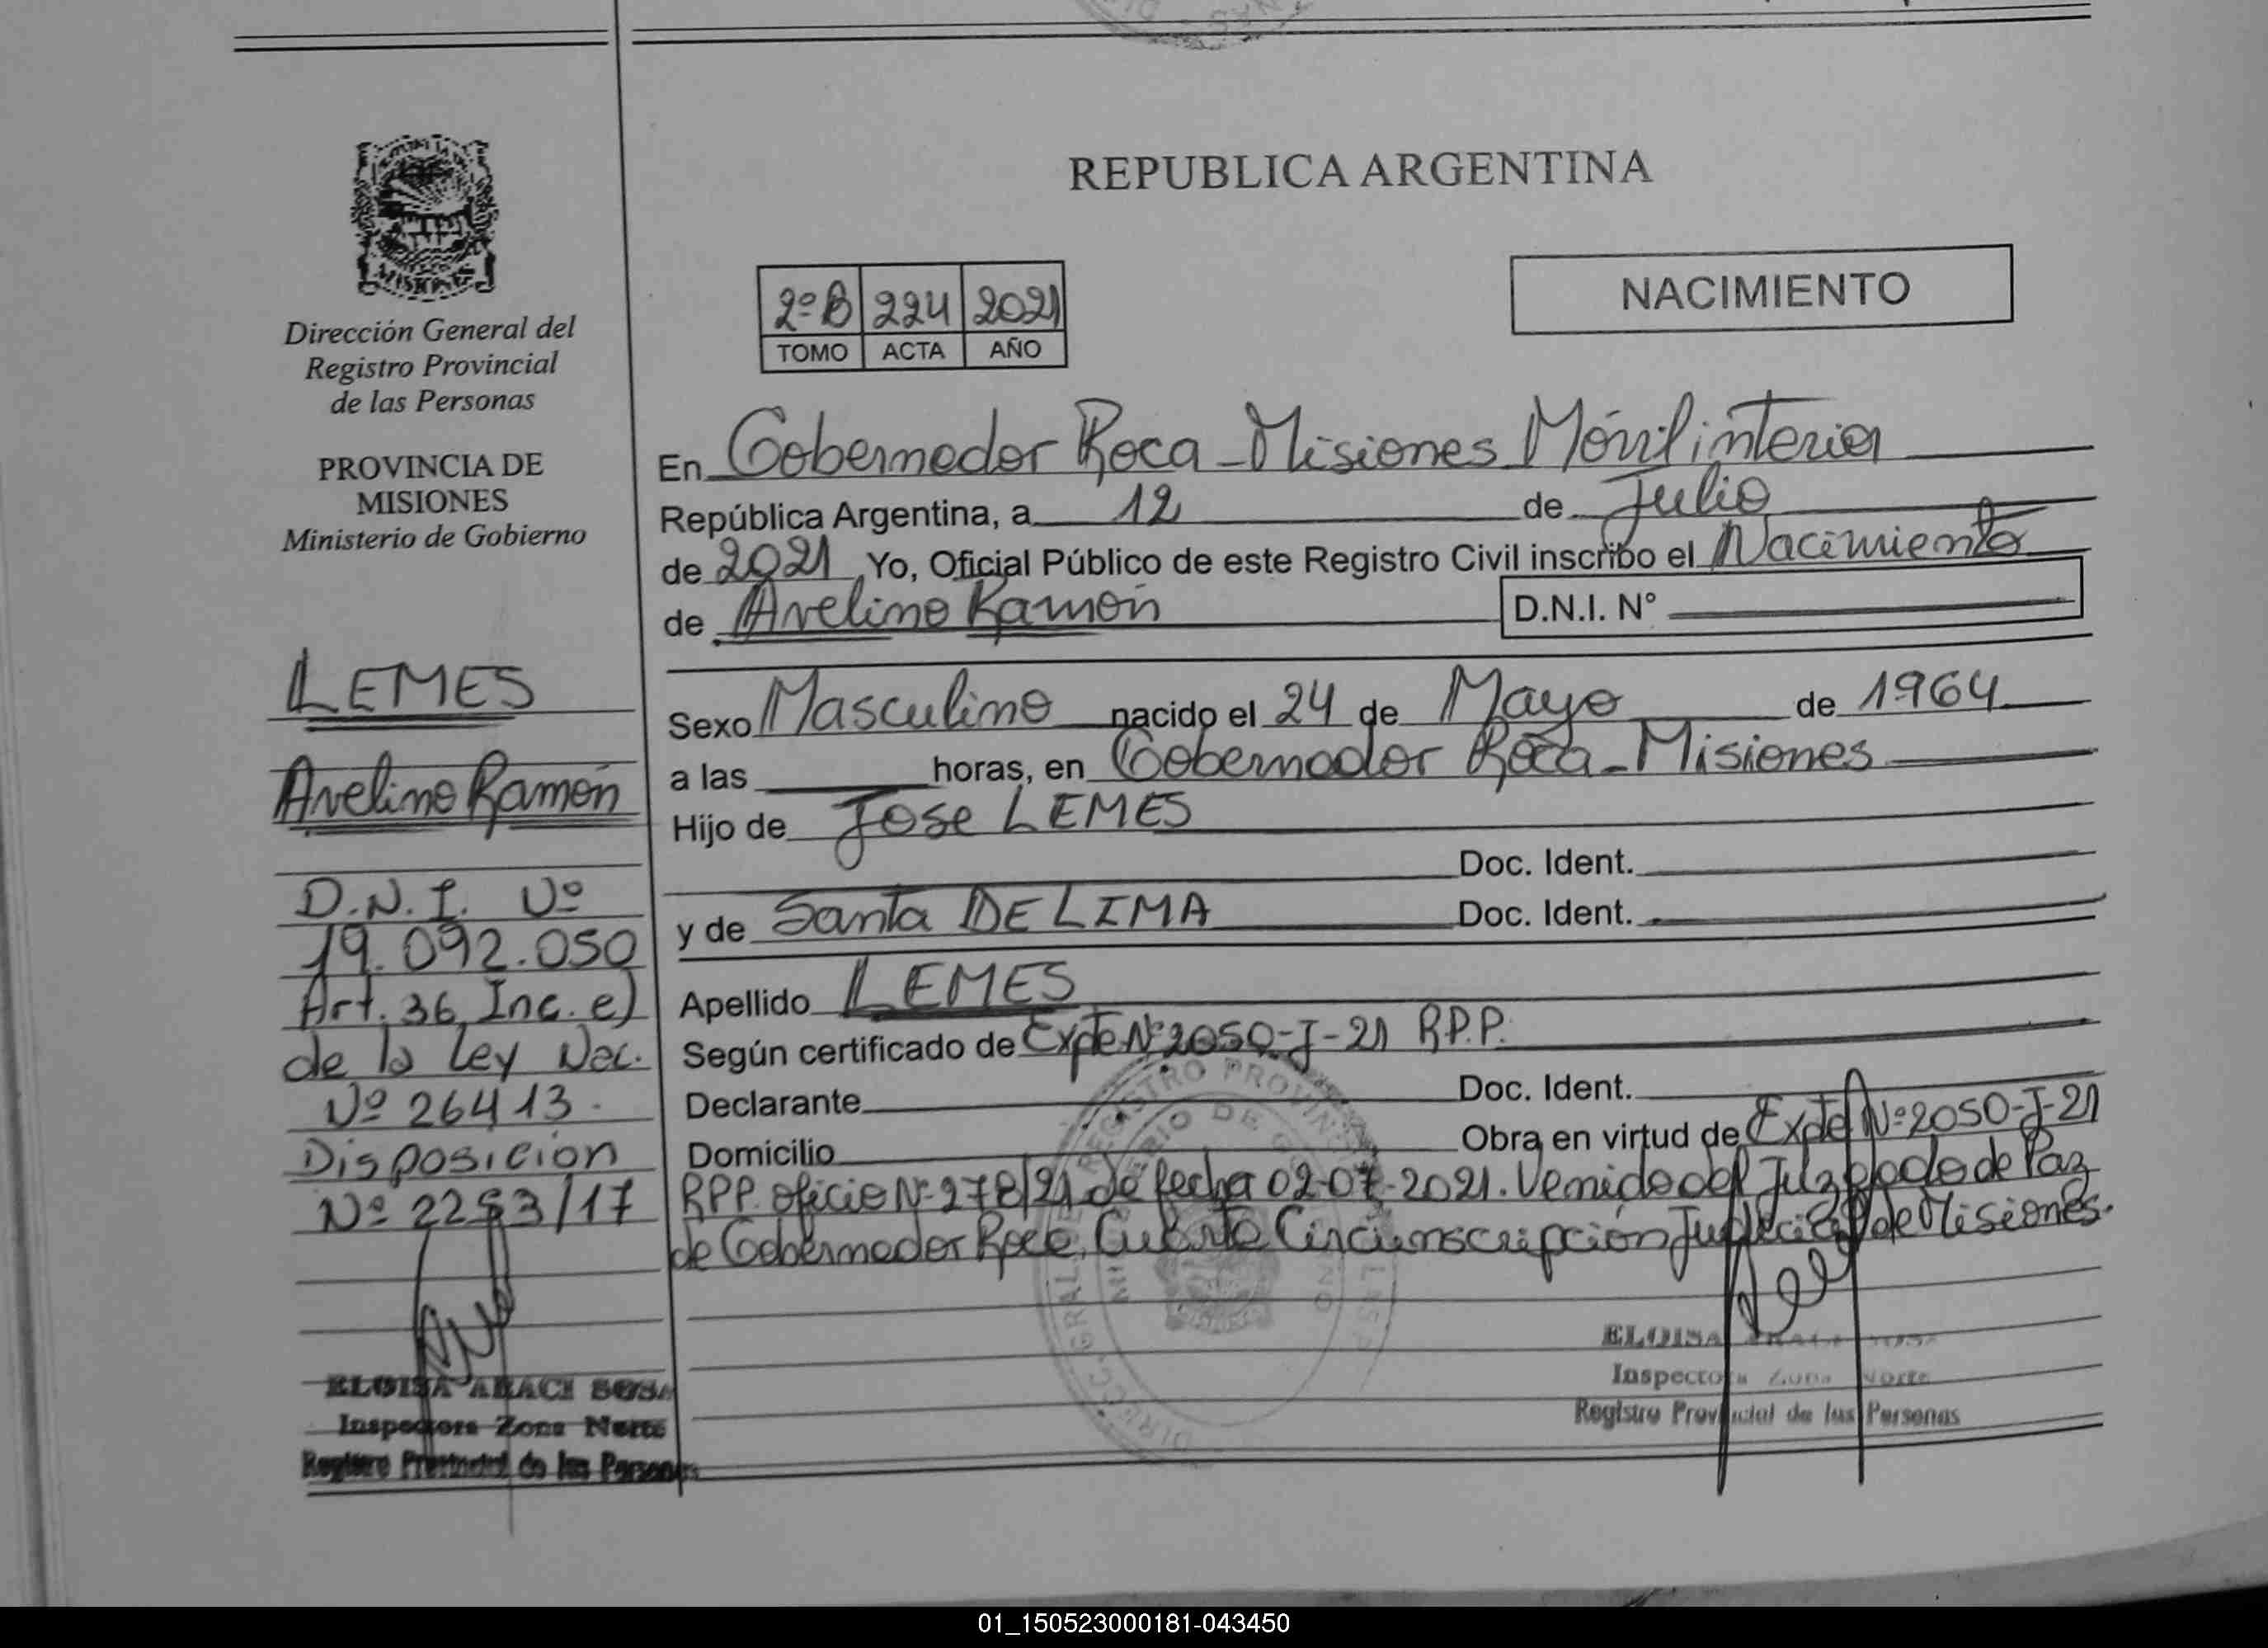 REPUBLICA ARGENTINA
NACIMIENTO
2º B 224 2021
TOMO ACTA AÑO
Dirección General del
Registro Provincial
de las Personas
PROVINCIA DE
MISIONES
Ministerio de Gobierno
LEMES
Avelino Ramón
D.N.I. Nº
19.092.050
Art. 36 Inc. e)
de la Ley Nac.
Nº 26413.
Disposición
Nº 2253/17
ELOISA ARACI SOSA
Inspectora Zona Norte
Registro Provincial de las Personas
En Gobernador Roca - Misiones Móvil interior
República Argentina, a 12 de Julio
de 2021 Yo, Oficial Público de este Registro Civil inscribo el Nacimiento
de Avelino Ramón D.N.I. N°
Sexo Masculino nacido el 24 de Mayo de 1964
a las horas, en Gobernador Roca - Misiones
Hijo de Jose LEMES
Doc. Ident.
y de Santa DE LIMA Doc. Ident.
Apellido LEMES
Según certificado de Expte Nº 2050-J-21 R.P.P.
Declarante Doc. Ident.
Domicilio Obra en virtud de Expte Nº 2050-J-21
RPP. oficio Nº 278/21 de fecha 02-07-2021. Venido del Juzgado de Paz
de Gobernador Roca, Cuarta Circunscripción Judicial de Misiones.
ELOISA
Inspectora Zona Norte
Registro Provincial de las Personas
01_150523000181-043450